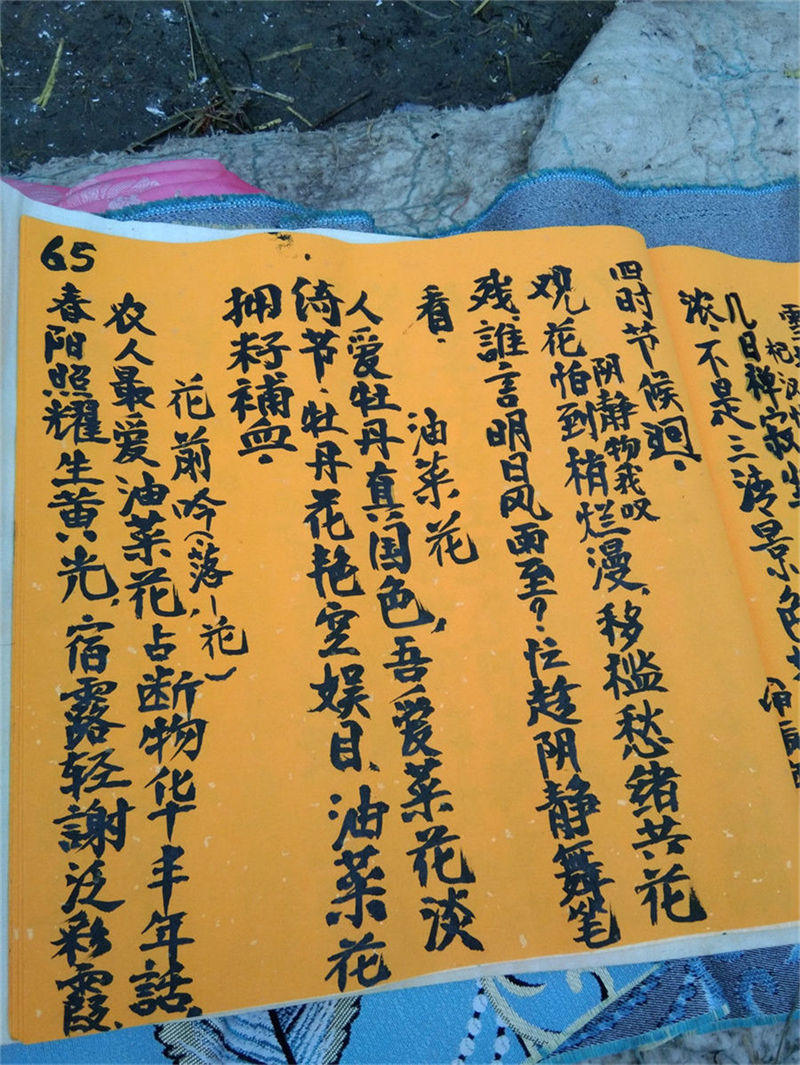 几日禅寂生
浓、不是三湾景色
四时节候廻、
阴静物我叹
观花怕到梢烂漫，移槛愁绪共花
残、誰言明日风雨至？忙趁阴静舞笔
看、
油菜花
人爱牡丹真国色，吾爱菜花淡
绮节、牡丹花艳空娱目、油菜花
拥籽補血、
花前吟（落一花）
农人最爱油菜花，占断物华十丰年話，
春阳照耀生黄光，宿露轻謝泛彩霞、
65